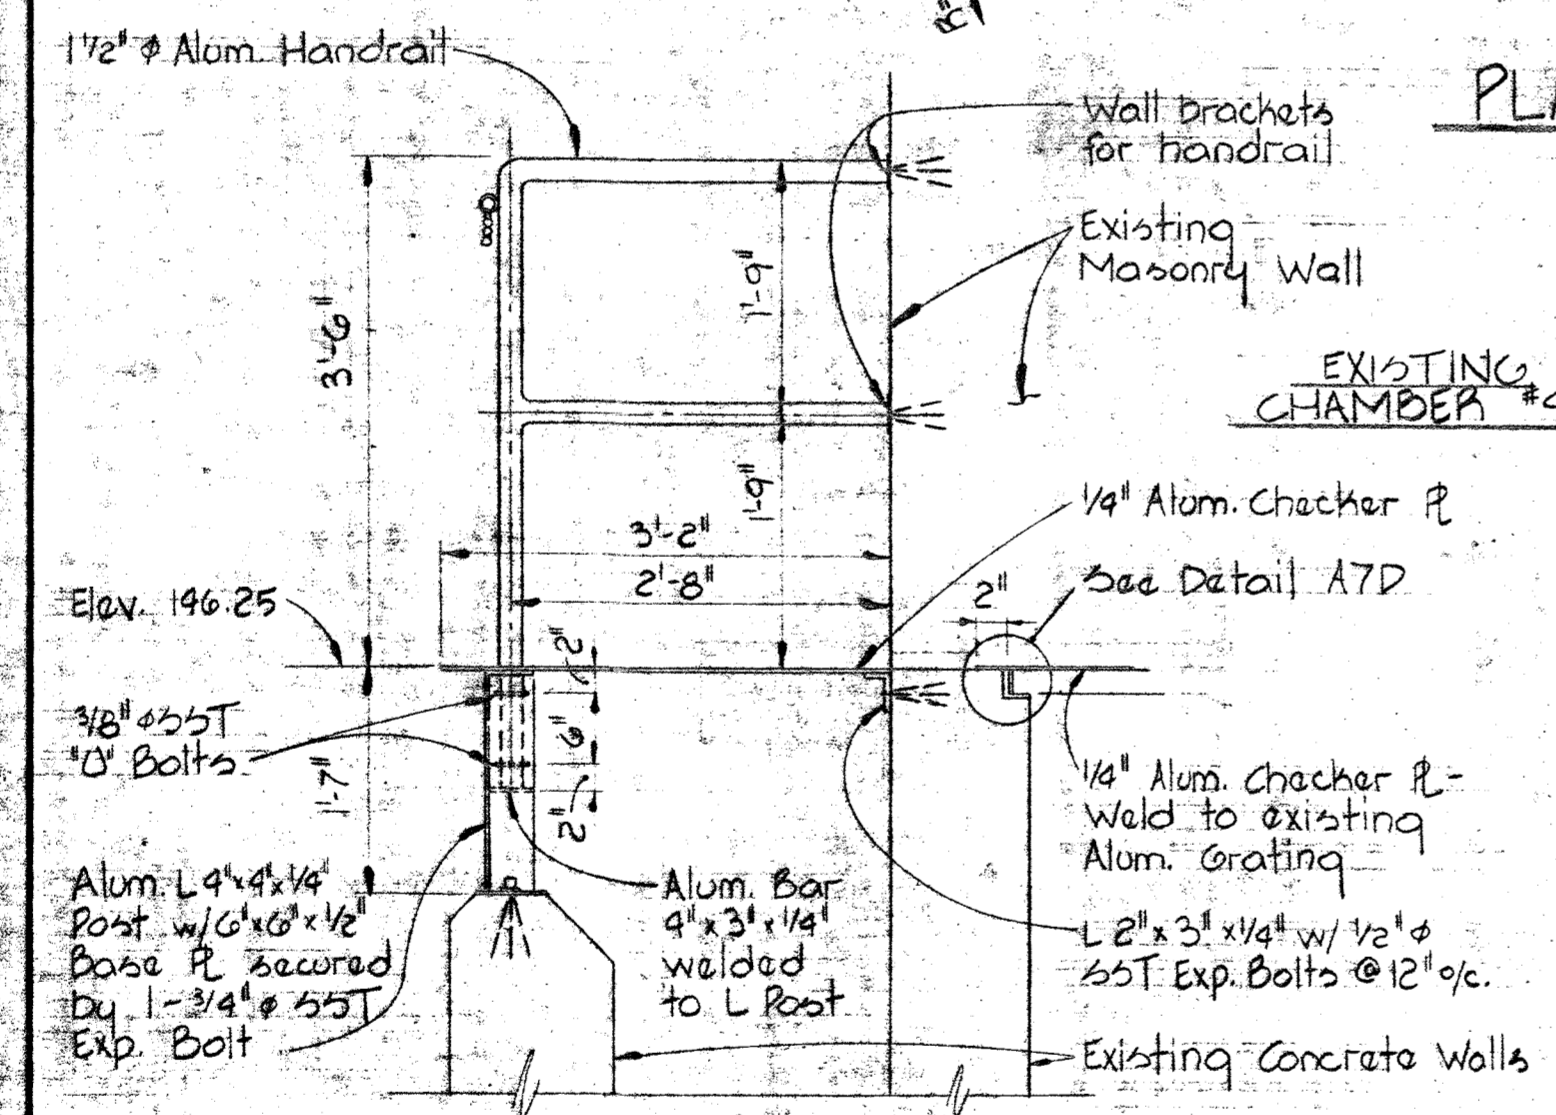 1 1/2" φ Alum. Handrail
Wall brackets
for handrail
Existing
Masonry Wall
EXISTING
CHAMBER
3'-6"
1'-9"
1'-9"
3'-2"
2'-8"
1/4" Alum. Checker PL
See Detail A7D
2"
Elev. 196.25
3/8" φ SST
"U" Bolts
2"
6"
2"
1'-7"
1/4" Alum. Checker PL-
Weld to existing
Alum. Grating
Alum. L 4"x4"x1/4"
Post w/6"x6"x1/2"
Base PL secured
by 1-3/4" φ SST
Exp. Bolt
Alum. Bar
4"x3"x1/4"
welded
to L Post
L 2"x3"x1/4" w/ 1/2" φ
SST Exp. Bolts @ 12" o/c.
Existing Concrete Walls